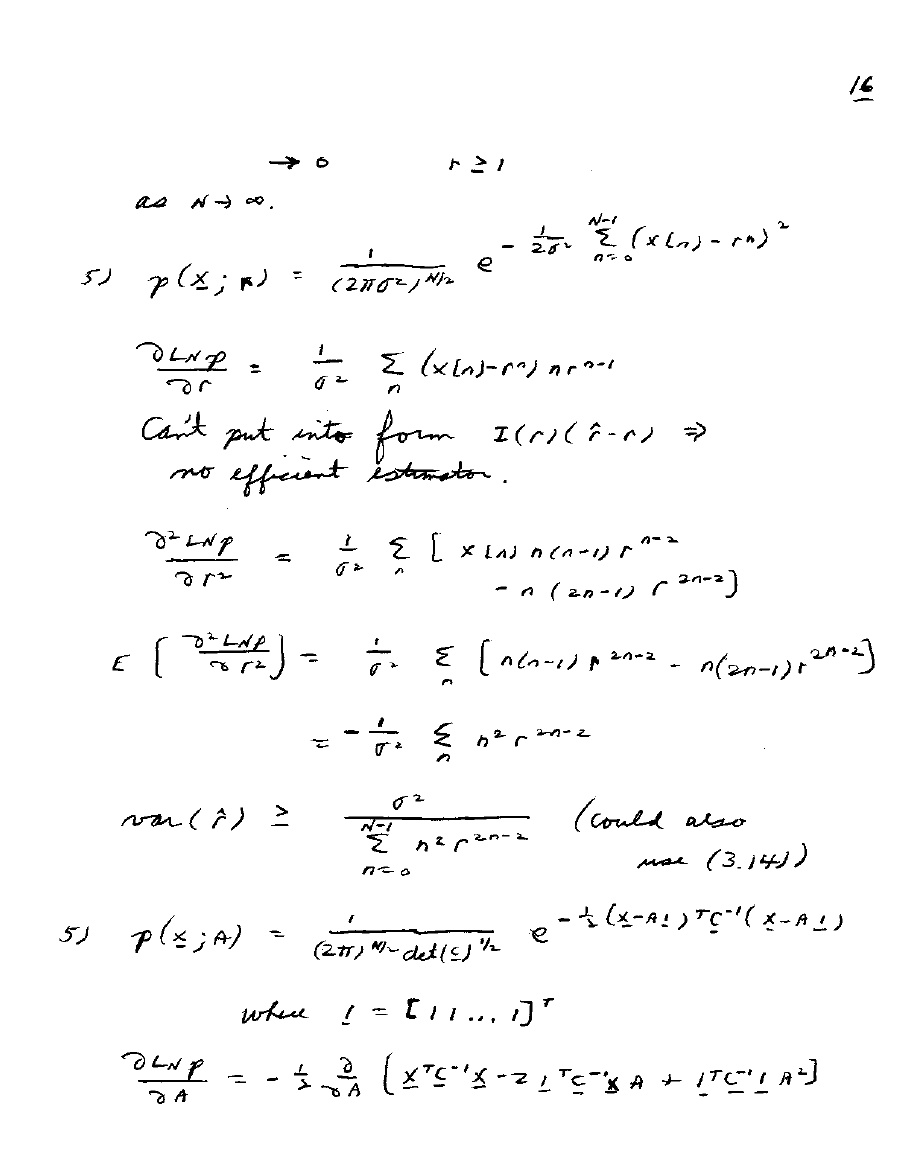 16
→ 0 r ≥ 1
as N → ∞.
5) p(x; r) = 1/(2πσ²)^{N/2} e^{-1/(2σ²) Σ_{n=0}^{N-1} (x[n] - rⁿ)²}
∂LNp/∂r = 1/σ² Σ_n (x[n] - rⁿ) n r^{n-1}
Can't put into form I(r)(r̂ - r) ⇒
no efficient estimator.
∂²LNp/∂r² = 1/σ² Σ_n [x[n] n(n-1) r^{n-2}
- n(2n-1) r^{2n-2}]
E[∂²LNp/∂r²] = 1/σ² Σ_n [n(n-1) r^{2n-2} - n(2n-1) r^{2n-2}]
= -1/σ² Σ_n n² r^{2n-2}
var(r̂) ≥ σ² / Σ_{n=0}^{N-1} n² r^{2n-2} (could also
use (3.14))
5) p(x; A) = 1/((2π)^{N/2} det(C)^{1/2}) e^{-½(x - A1)ᵀC⁻¹(x - A1)}
where 1 = [1 1 ... 1]ᵀ
∂LNp/∂A = -½ ∂/∂A [xᵀC⁻¹x - 2 1ᵀC⁻¹x A + 1ᵀC⁻¹1 A²]